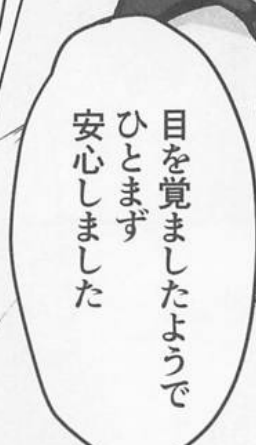 目を覚ましたようで
ひとまず
安心しました